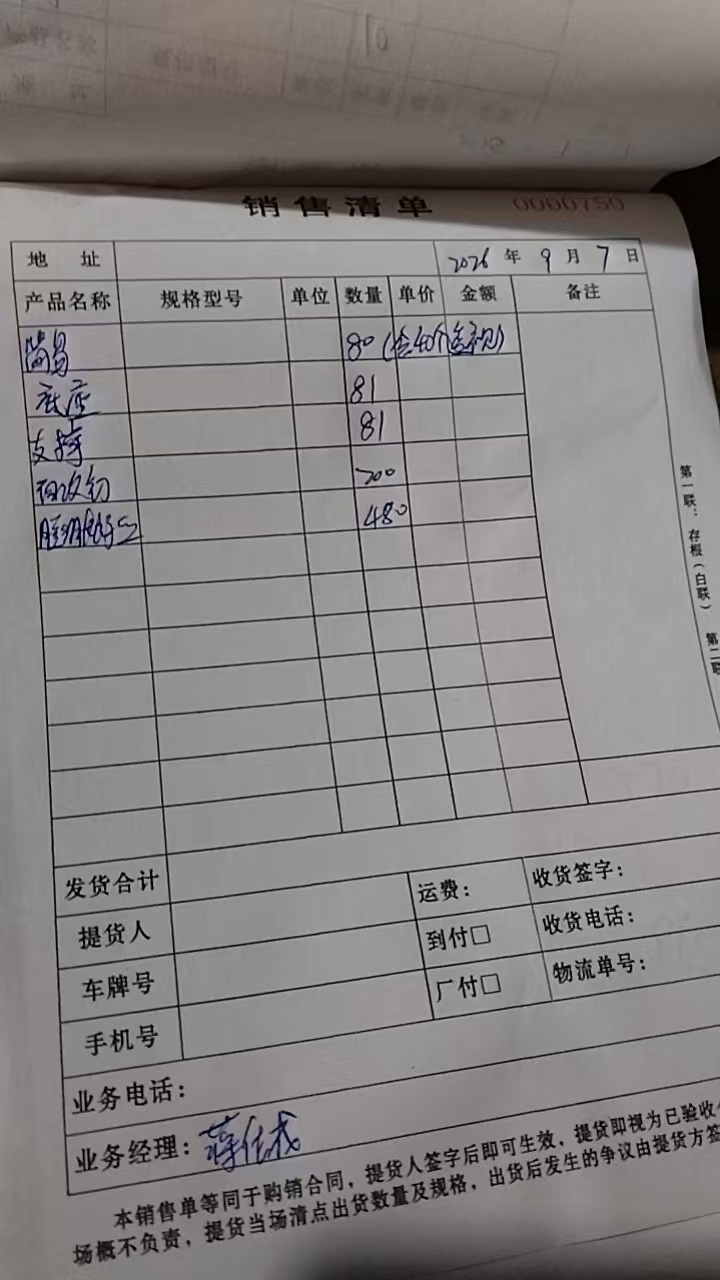 销售清单 0000750
地 址 2026 年 9 月 7 日
产品名称 规格型号 单位 数量 单价 金额 备注
简易 80
底座 81
支撑 81
200
480
第一联：存根（白联） 第二联
发货合计 运费： 收货签字：
提货人 到付□ 收货电话：
车牌号 厂付□ 物流单号：
手机号
业务电话：
业务经理：
本销售单等同于购销合同，提货人签字后即可生效，提货即视为已验收
场概不负责，提货当场清点出货数量及规格，出货后发生的争议由提货方签